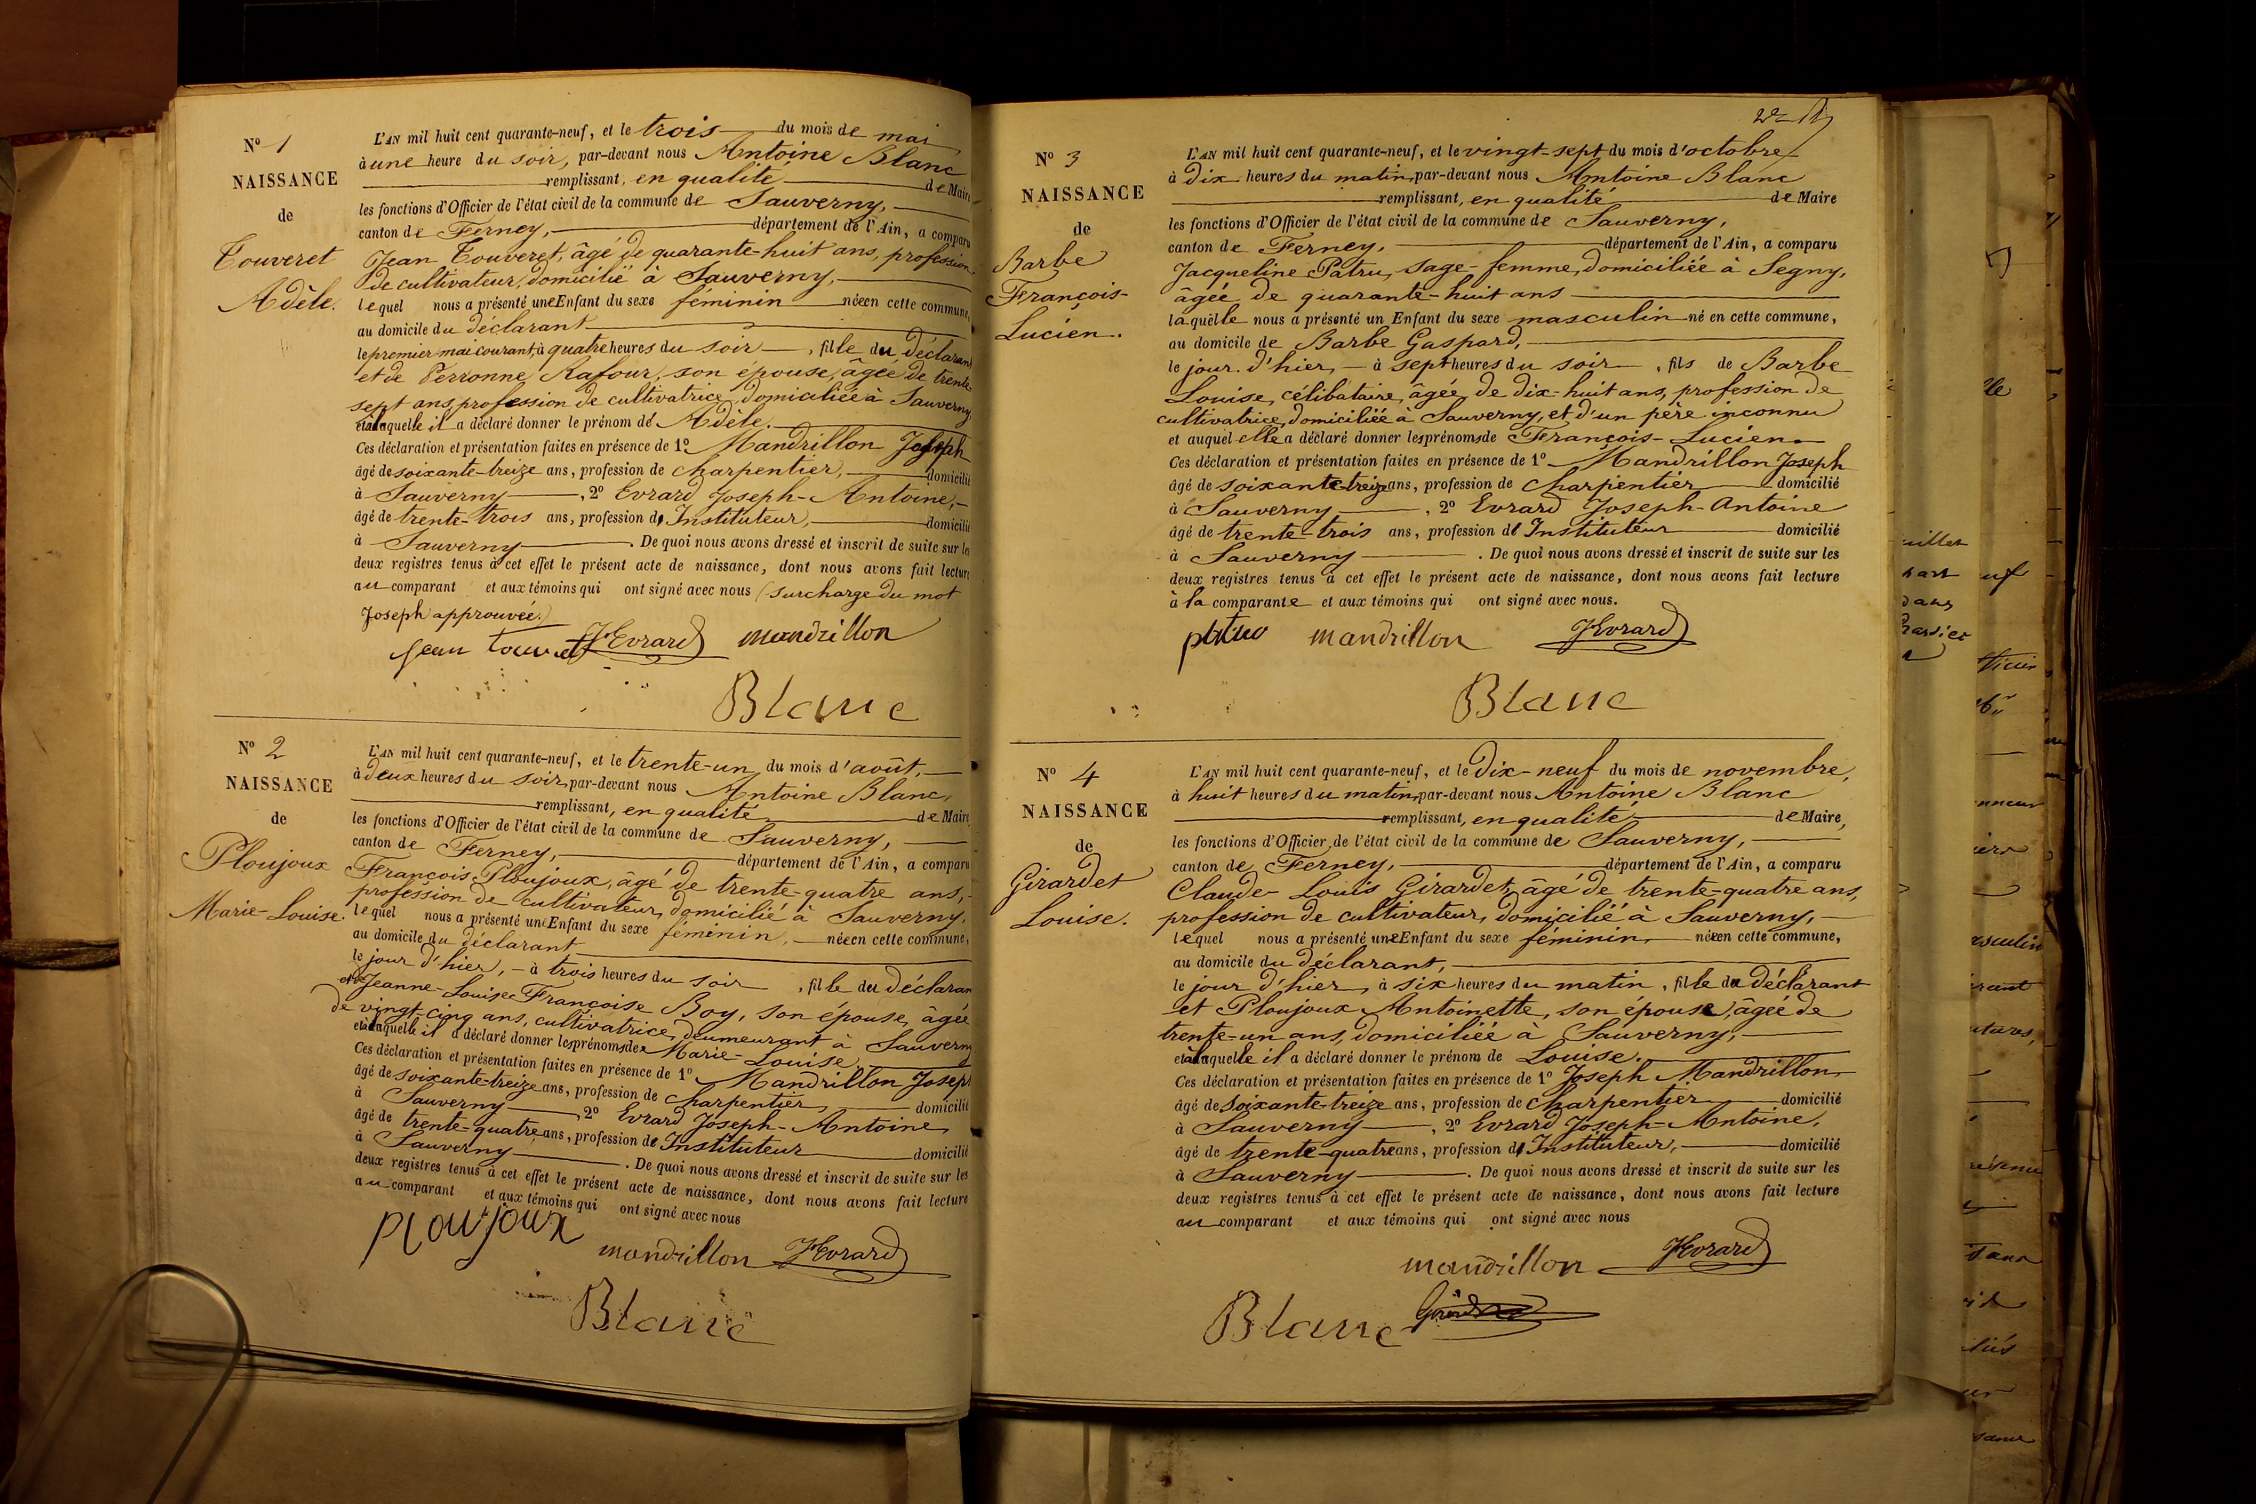 Nº 1
NAISSANCE
de
Touveret
Adèle.
L'AN mil huit cent quarante-neuf, et le trois du mois de mai
à une heure du soir, par-devant nous Antoine Blanc
remplissant, en qualité de Maire
les fonctions d'Officier de l'état civil de la commune de Sauverny,
canton de Ferney, département de l'Ain, a comparu
Jean Touveret, âgé de quarante-huit ans, profession
de cultivateur, domicilié à Sauverny,
lequel nous a présenté une Enfant du sexe féminin née en cette commune,
au domicile du déclarant
le premier mai courant, à quatre heures du soir, fille du déclarant
et de Perronne Rafour, son épouse, âgée de trente
sept ans, profession de cultivatrice, domiciliée à Sauverny
et à laquelle il a déclaré donner le prénom de Adèle.
Ces déclaration et présentation faites en présence de 1º Mandrillon Joseph
âgé de soixante-treize ans, profession de charpentier, domicilié
à Sauverny, 2º Evrard Joseph-Antoine,
âgé de trente-trois ans, profession d'Instituteur, domicilié
à Sauverny. De quoi nous avons dressé et inscrit de suite sur les
deux registres tenus à cet effet le présent acte de naissance, dont nous avons fait lecture
au comparant et aux témoins qui ont signé avec nous (surcharge du mot
Joseph approuvée.)
Jean Touveret JEvrard mandrillon
Blanc
Nº 2
NAISSANCE
de
Ploujoux
Marie-Louise.
L'AN mil huit cent quarante-neuf, et le trente-un du mois d'août,
à deux heures du soir, par-devant nous Antoine Blanc,
remplissant, en qualité de Maire
les fonctions d'Officier de l'état civil de la commune de Sauverny,
canton de Ferney, département de l'Ain, a comparu
François Ploujoux, âgé de trente-quatre ans,
profession de cultivateur, domicilié à Sauverny,
lequel nous a présenté une Enfant du sexe féminin, née en cette commune,
au domicile du déclarant
le jour d'hier, à trois heures du soir, fille du déclarant
et de Jeanne-Louise Françoise Boy, son épouse, âgée
de vingt-cinq ans, cultivatrice, deumeurant à Sauverny
et à laquelle il a déclaré donner les prénoms de Marie-Louise,
Ces déclaration et présentation faites en présence de 1º Mandrillon Joseph
âgé de soixante-treize ans, profession de charpentier, domicilié
à Sauverny, 2º Evrard Joseph-Antoine
âgé de trente-quatre ans, profession de Instituteur domicilié
à Sauverny. De quoi nous avons dressé et inscrit de suite sur les
deux registres tenus à cet effet le présent acte de naissance, dont nous avons fait lecture
au comparant et aux témoins qui ont signé avec nous
Ploujoux
mandrillon JEvrard
Blanc
Nº 3
NAISSANCE
de
Barbe
François-
Lucien.
L'AN mil huit cent quarante-neuf, et le vingt-sept du mois d'octobre
à dix heures du matin, par-devant nous Antoine Blanc
remplissant, en qualité de Maire
les fonctions d'Officier de l'état civil de la commune de Sauverny,
canton de Ferney, département de l'Ain, a comparu
Jacqueline Patru, sage-femme, domiciliée à Segny,
âgée de quarante-huit ans
laquelle nous a présenté un Enfant du sexe masculin né en cette commune,
au domicile de Barbe Gaspard,
le jour d'hier, à sept heures du soir, fils de Barbe
Louise, célibataire, âgée de dix-huit ans, profession de
cultivatrice, domiciliée à Sauverny, et d'un père inconnu
et auquel elle a déclaré donner les prénoms de François-Lucien.
Ces déclaration et présentation faites en présence de 1º Mandrillon Joseph
âgé de soixante-treize ans, profession de charpentier domicilié
à Sauverny, 2º Evrard Joseph-Antoine
âgé de trente-trois ans, profession de Instituteur domicilié
à Sauverny. De quoi nous avons dressé et inscrit de suite sur les
deux registres tenus à cet effet le présent acte de naissance, dont nous avons fait lecture
à la comparante et aux témoins qui ont signé avec nous.
patru mandrillon JEvrard
Blanc
Nº 4
NAISSANCE
de
Girardet
Louise.
L'AN mil huit cent quarante-neuf, et le dix-neuf du mois de novembre,
à huit heures du matin, par-devant nous Antoine Blanc
remplissant, en qualité de Maire,
les fonctions d'Officier de l'état civil de la commune de Sauverny,
canton de Ferney, département de l'Ain, a comparu
Claude-Louis Girardet, âgé de trente-quatre ans,
profession de cultivateur, domicilié à Sauverny,
lequel nous a présenté une Enfant du sexe féminin, née en cette commune,
au domicile du déclarant,
le jour d'hier, à six heures du matin, fille du déclarant
et Ploujoux Antoinette, son épouse, âgée de
trente-un ans, domiciliée à Sauverny,
et à laquelle il a déclaré donner le prénom de Louise.
Ces déclaration et présentation faites en présence de 1º Joseph Mandrillon
âgé de soixante-treize ans, profession de charpentier domicilié
à Sauverny, 2º Evrard Joseph-Antoine,
âgé de trente-quatre ans, profession d'Instituteur, domicilié
à Sauverny. De quoi nous avons dressé et inscrit de suite sur les
deux registres tenus à cet effet le présent acte de naissance, dont nous avons fait lecture
au comparant et aux témoins qui ont signé avec nous
mandrillon JEvrard
Blanc